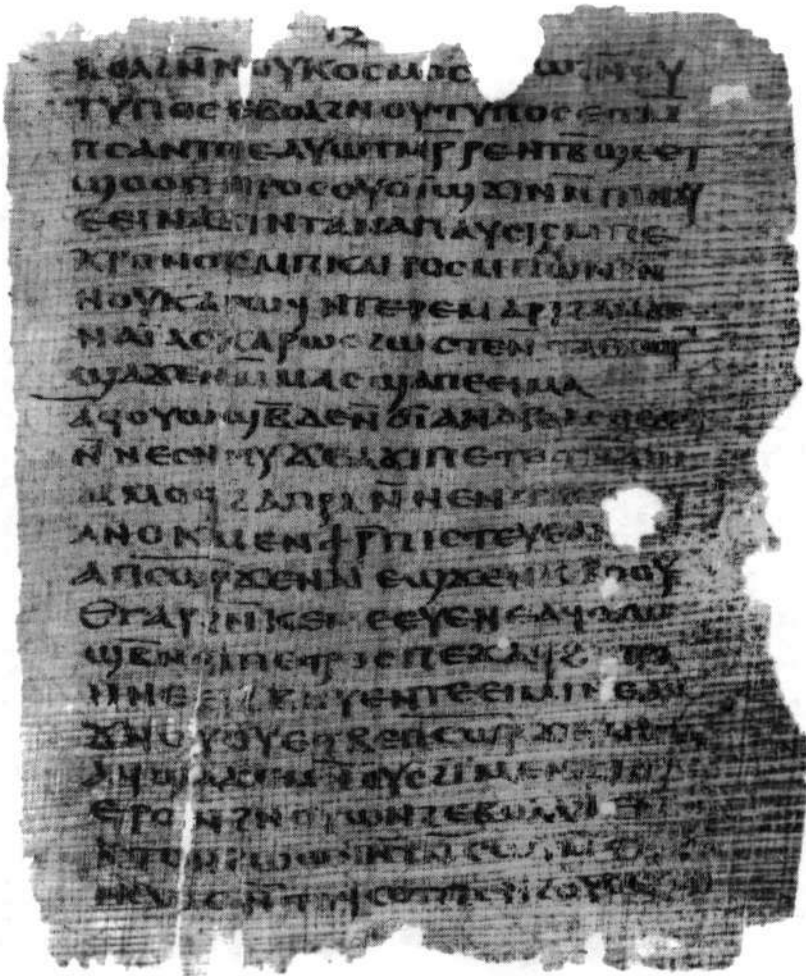 ⲓⲍ
ⲃⲟⲗ ϩⲛ̄ⲛⲟⲩⲕⲟⲥⲙⲟⲥ ϩⲛ̄ⲟⲩ
ⲧⲩⲡⲟⲥ ⲉⲃⲟⲗ ϩⲛ ⲟⲩⲧⲩⲡⲟⲥ ⲉⲧⲙ̄
ⲡⲥⲁ ⲛⲧⲡⲉ ⲁⲩⲱ ⲧⲙⲣ̄ⲣⲉ ⲛⲧⲃ̄ϣⲉ ⲉⲧ
ϣⲟⲟⲡ ⲡⲣⲟⲥ ⲟⲩⲟⲓ̈ϣ ϫⲓⲛ ⲙ̄ⲡⲓⲛⲁⲩ
ⲉⲉⲓⲛⲁϫⲓ ⲛⲧⲁⲛⲁⲡⲁⲩⲥⲓⲥ ⲙⲡⲉ
ⲭⲣⲟⲛⲟⲥ ⲙⲡⲕⲁⲓⲣⲟⲥ ⲙⲡⲁⲓⲱⲛ ϩⲛ
ⲛⲟⲩⲕⲁⲣⲱϥ ⲛⲧⲉⲣⲉⲙⲁⲣⲓϩⲁⲙ ϫⲉ
ⲛⲁⲓ̈ ⲁⲥⲕⲁⲣⲱⲥ ϩⲱⲥⲧⲉ ⲛ̄ⲧⲁⲡⲥⲱⲣ̄
ϣⲁϫⲉ ⲛⲙ̄ⲙⲁⲥ ϣⲁⲡⲉⲉⲓⲙⲁ
ⲁϥⲟⲩⲱϣⲃ̄ ⲇⲉ ⲛ̄ϭⲓ ⲁⲛⲇⲣⲉⲁⲥ ⲡⲉϫⲁϥ
ⲛ̄ⲛⲉⲥⲛⲏⲩ ϫⲉ ⲁϫⲓⲡⲉⲧⲉⲧⲛ̄ϫⲱ
ⲙⲙⲟϥ ϩⲁ ⲡⲣⲁ ⲛ̄ⲛⲉⲛⲧ
ⲁⲛⲟⲕ ⲙⲉⲛ ϯⲣ̄ⲡⲓⲥⲧⲉⲩⲉ ⲁⲛ
ⲁⲡⲥⲱⲣ̄ ϫⲉ ⲛⲁⲓ̈ ⲉϣϫⲉ ⲛⲓⲥⲃⲟⲟⲩ
ⲉ ⲅⲁⲣ ϩⲛ̄ⲕⲉⲙⲉⲉⲩⲉ ⲛⲉ ⲁϥⲟⲩⲱ
ϣⲃ̄ ⲛϭⲓ ⲡⲉⲧⲣⲟⲥ ⲡⲉϫⲁϥ ϩⲁ ⲡⲣⲁ
ⲛⲛⲉⲉⲓϩⲃⲏⲩⲉ ⲛⲧⲉⲉⲓⲙⲓⲛⲉ ⲁϥ
ϫⲛⲟⲩⲟⲩ ⲉⲧⲃⲉ ⲡⲥⲱⲣ̄ ϫⲉ ⲙⲏⲧⲓ
ⲁϥϣⲁϫⲉ ⲙⲛ̄ ⲟⲩⲥϩⲓⲙⲉ ⲛϫⲓⲟⲩⲉ
ⲉⲣⲟⲛ ϩⲛ ⲟⲩⲱⲛϩ ⲉⲃⲟⲗ ⲁⲛ
ⲕⲧⲟⲛ ϩⲱⲱⲛ ⲛ̄ⲧⲛ̄ⲥⲱⲧⲙ̄
ⲛⲥⲱⲥ ⲛ̄ⲧⲁϥⲥⲟⲧⲡⲥ ⲛϩⲟⲩⲟ ⲉⲣⲟⲛ